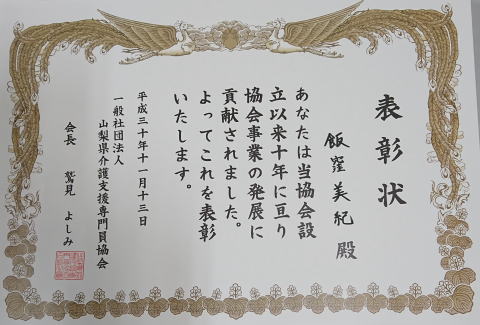 表彰状
飯窪美紀 殿
あなたは当協会設
立以来十年に亘り
協会事業の発展に
貢献されました。
よってこれを表彰
いたします。
平成三十年十一月十三日
一般社団法人
山梨県介護支援専門員協会
会長 鷲見 よしみ